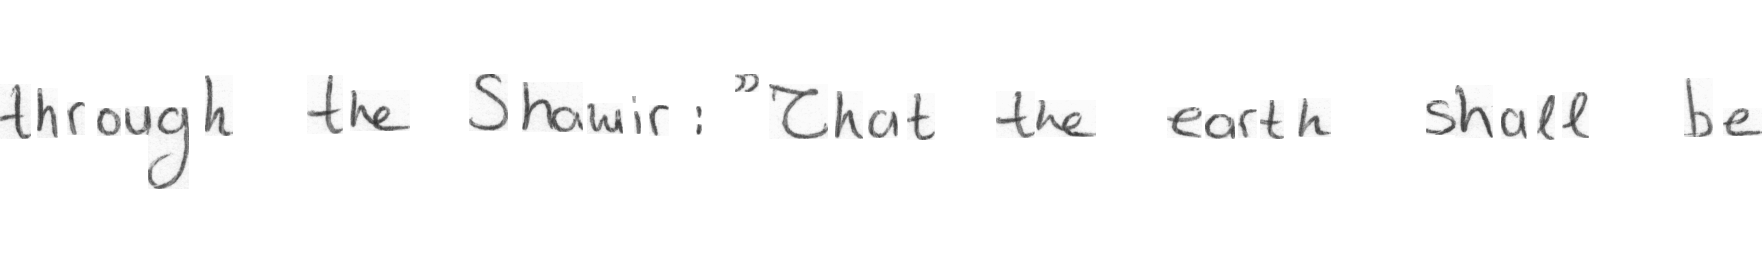 through the Shamir: "That the earth shall be